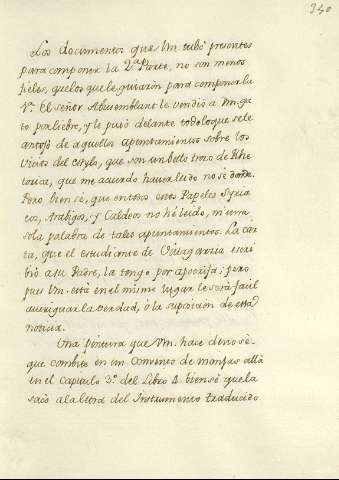 340
Los documentos que Vm. tubó presentes
para componer la 2ª Parte, no son menos
fieles, quelos que le guiarón para componer la
1ª. El señor Abusemblant le vendió a Vm. ga-
to por liebre, y le pusó delante todo lo que se le
antojó de aquellos apuntamientos sobre los
Vicios del estylo, que son un bello trozo de Rhe-
torica, que me acuerdo haver leido no sé donde.
Pero bien sé, que en todos estos Papeles Syria-
cos, Arabigos, y Caldeos no hé leido, ni una
sola palabra de tales apuntamientos. La car-
ta, que el estudiante de Villagarzia escri-
bió a su Padre, la tengo por apocrifa; pero
pues Vm. está en el mismo lugar le será facil
averiguar la verdad, ó la suposicion de esta
noticia.
Una pintura que Vm. hace de no sè
que combite en un Convento de Monjas allá
en el capitulo 3º. del Libro 4. bien sé que la
sacó a la letra del Instrumento traducido